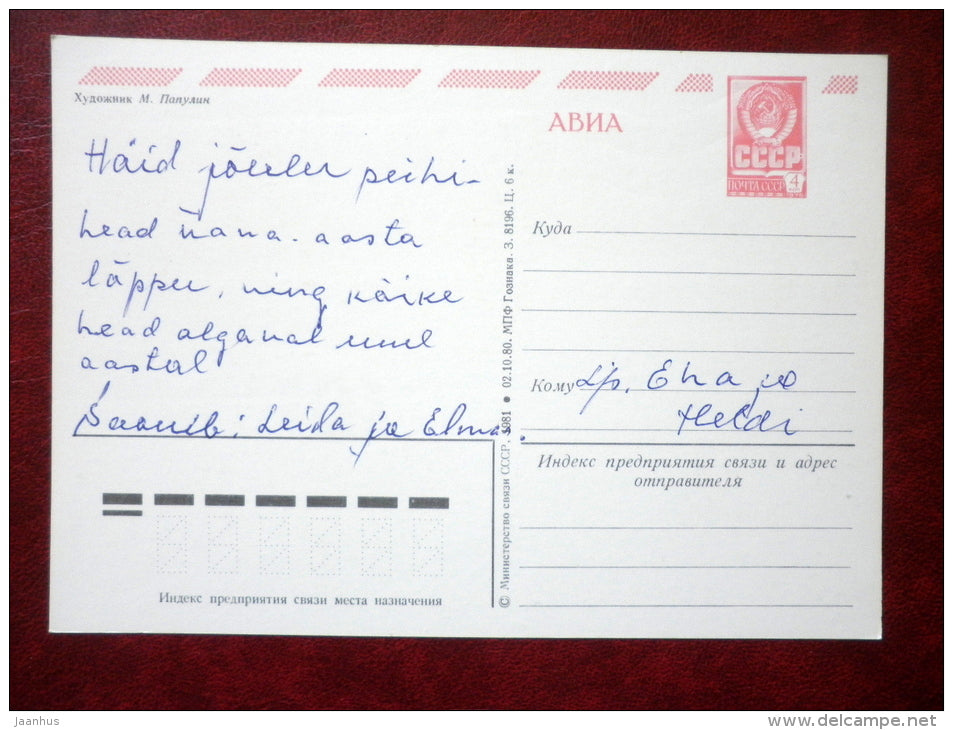 Художник М. Папулин
АВИА
СССР
ПОЧТА СССР 4
Häid jõulu pühi-
head vana. aasta
lõppu, ning kõike
head algaval uuel
aastal
Soovib: Leida ja Elmar.
Куда
Кому Lp. Eha ja
Heldi
Индекс предприятия связи и адрес
отправителя
Индекс предприятия связи места назначения
© Министерство связи СССР, 1981 ● 02.10.80. МПФ Гознака. З. 8196. Ц. 6 к.
Jaanhus
www.delcampe.net